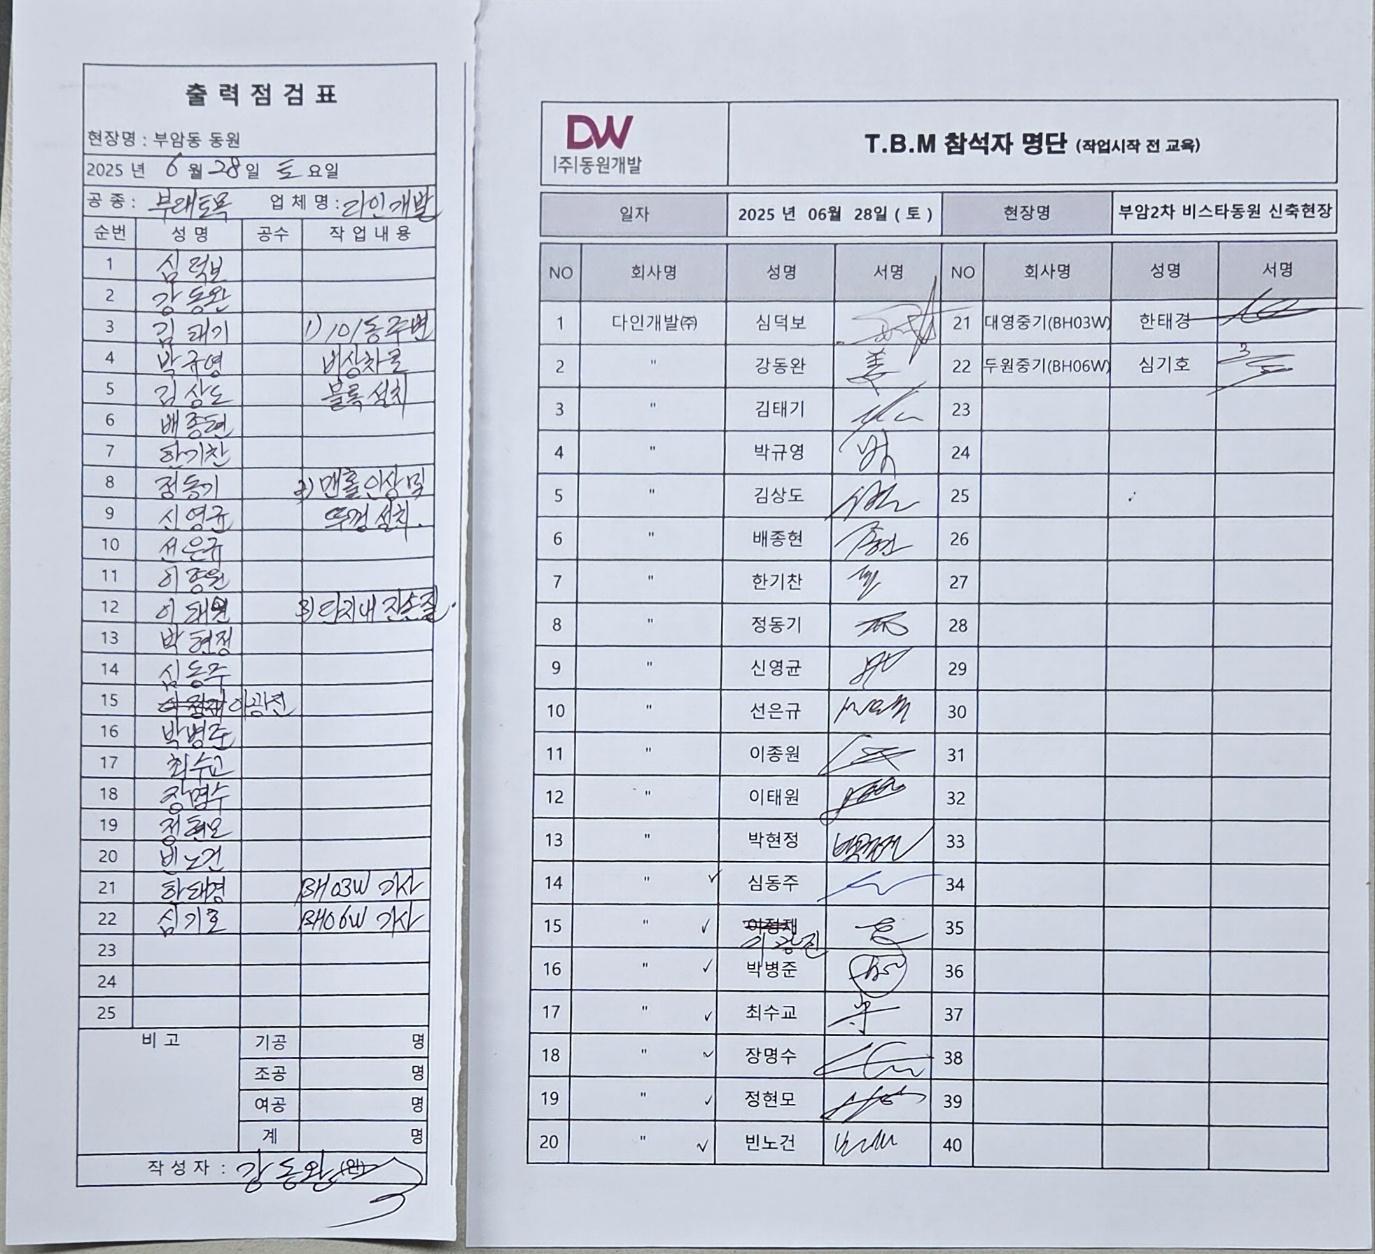 출력점검표
현장명 : 부암동 동원
2025 년 6 월 28 일 토 요일
공 종 : 부대토목 업 체 명 : 다인개발
순번 성 명 공수 작 업 내 용
1 심덕보
2 강동완
3 김태기 1) 101동주변
4 박규영 비상차로
5 김상도 블록 설치
6 배종현
7 한기찬
8 정동기 2) 맨홀인상 및
9 신영균 뚜껑 설치.
10 선은규
11 이종원
12 이태원 3) 단지내 잔손질.
13 박현정
14 심동주
15 이정재 이광진
16 박병준
17 최수교
18 장명수
19 정현모
20 빈노건
21 한태경 BH03W 기사
22 심기호 BH06W 기사
23
24
25
비 고 기공 명
조공 명
여공 명
계 명
작 성 자 : 강동완 (인)
DW
|주|동원개발
T.B.M 참석자 명단 (작업시작 전 교육)
일자 2025 년 06월 28일 ( 토 ) 현장명 부암2차 비스타동원 신축현장
NO 회사명 성명 서명 NO 회사명 성명 서명
1 다인개발㈜ 심덕보 21 대영중기(BH03W) 한태경
2 " 강동완 22 두원중기(BH06W) 심기호
3 " 김태기 23
4 " 박규영 24
5 " 김상도 25
6 " 배종현 26
7 " 한기찬 27
8 " 정동기 28
9 " 신영균 29
10 " 선은규 30
11 " 이종원 31
12 " 이태원 32
13 " 박현정 33
14 " ✓ 심동주 34
15 " ✓ 이정재 이광진 35
16 " ✓ 박병준 36
17 " ✓ 최수교 37
18 " ✓ 장명수 38
19 " ✓ 정현모 39
20 " ✓ 빈노건 40